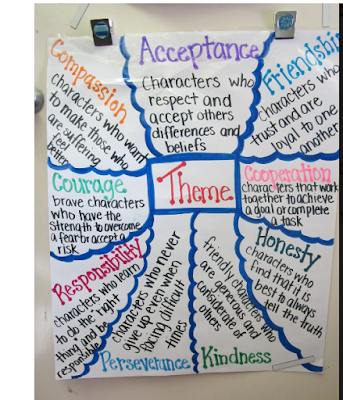 Compassion
characters who want
to make those who
are suffering
feel
better
Acceptance
Characters who
respect and
accept others
differences and
beliefs
Friendship
characters who
trust and are
loyal to one
another
Courage
brave characters
who have the
strength to overcome
a fear or accept a
risk
Theme
Cooperation
characters that work
together to achieve
a goal or complete
a task
Responsibility
characters who learn
to do the right
thing and be
responsible
characters who never
give up even when
facing difficult
times
Perseverance
friendly characters who
are generous and
considerate of
others
Kindness
Honesty
characters who
find that it is
best to always
tell the truth